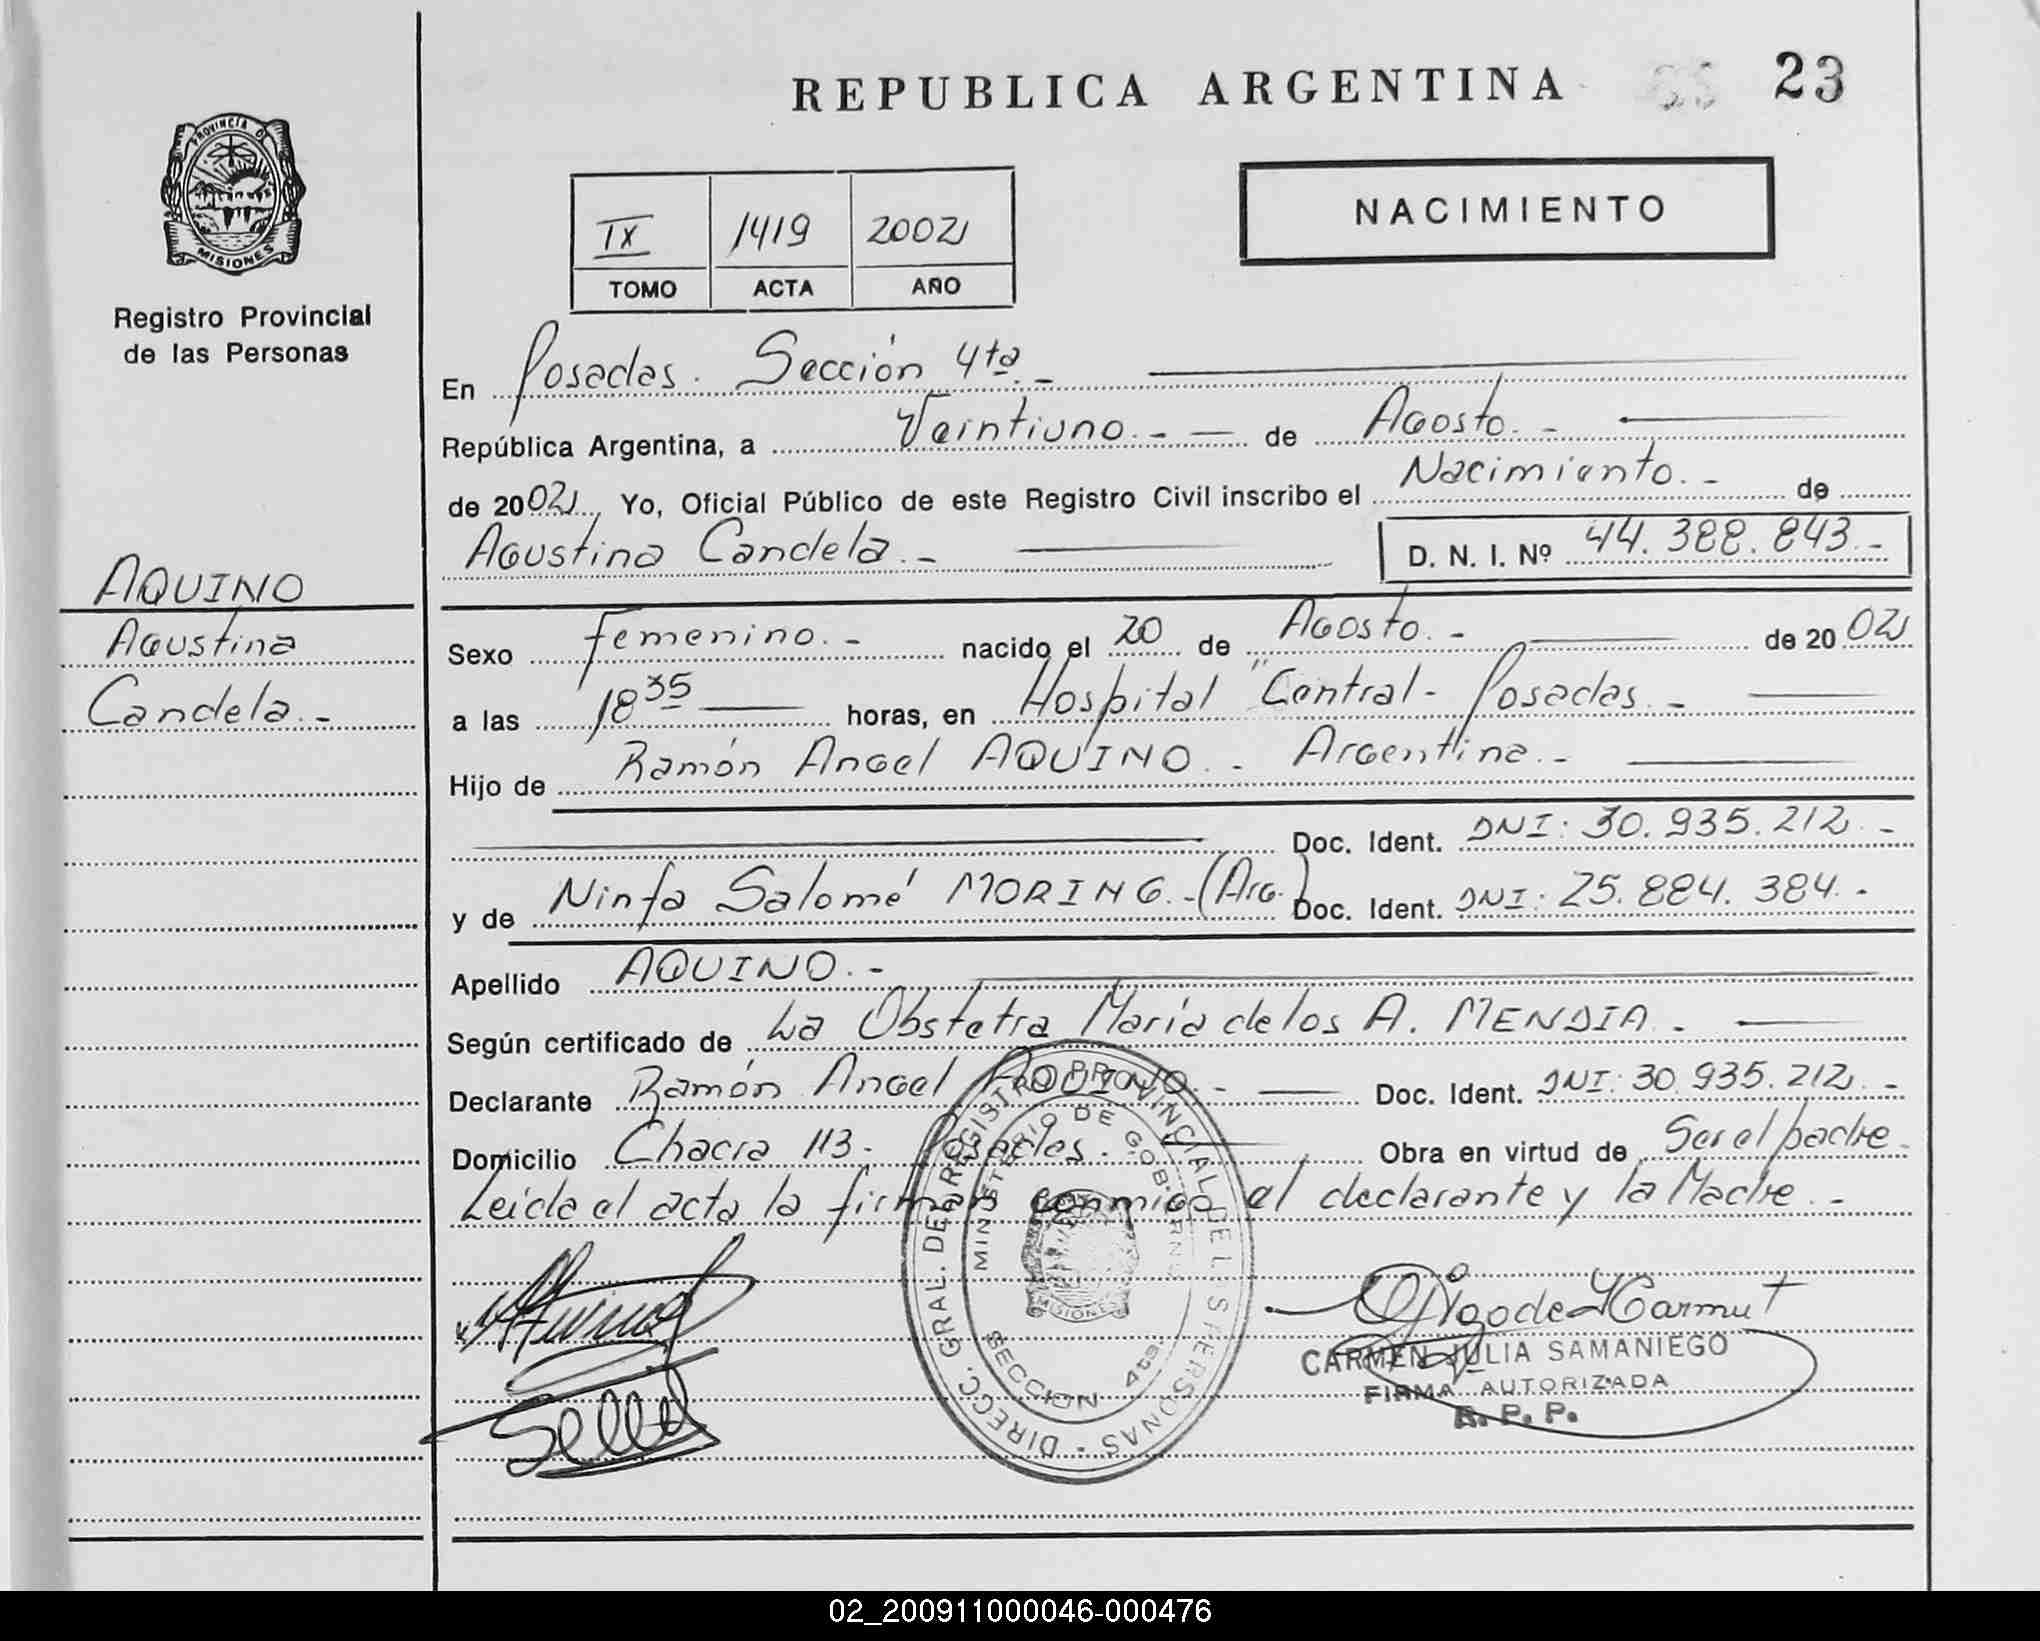 REPUBLICA ARGENTINA 23
PROVINCIA D
MISIONES
Registro Provincial
de las Personas
NACIMIENTO
IX 1419 2002
TOMO ACTA AÑO
En Posadas. Sección 4ta.-
República Argentina, a Veintiuno.- - de Agosto.-
de 2002, Yo, Oficial Público de este Registro Civil inscribo el Nacimiento.- de
Agustina Candela.- D. N. I. Nº 44.388.843.-
AQUINO
Agustina
Candela.-
Sexo femenino.- nacido el 20 de Agosto.- de 2002
a las 18 35 horas, en Hospital "Central- Posadas.-
Hijo de Ramón Angel AQUINO.- Argentina.-
Doc. Ident. DNI: 30.935.212.-
y de Ninfa Salomé MORING.-(Arg.) Doc. Ident. DNI: 25.884.384.-
Apellido AQUINO.-
Según certificado de La Obstetra María de los A. MENDIA.-
Declarante Ramón Angel AQUINO.- Doc. Ident. DNI: 30.935.212.-
Domicilio Chacra 113- Posadas. Obra en virtud de Ser el padre.
Leída el acta la firman conmigo el declarante y la Madre.-
DIRECC. GRAL. DEL REGISTRO PROVINCIAL DE LAS PERSONAS -
MINISTERIO DE GOBIERNO
MISIONES
SECCION 4ta.
CARMEN JULIA SAMANIEGO
FIRMA AUTORIZADA
R. P. P.
02_200911000046-000476